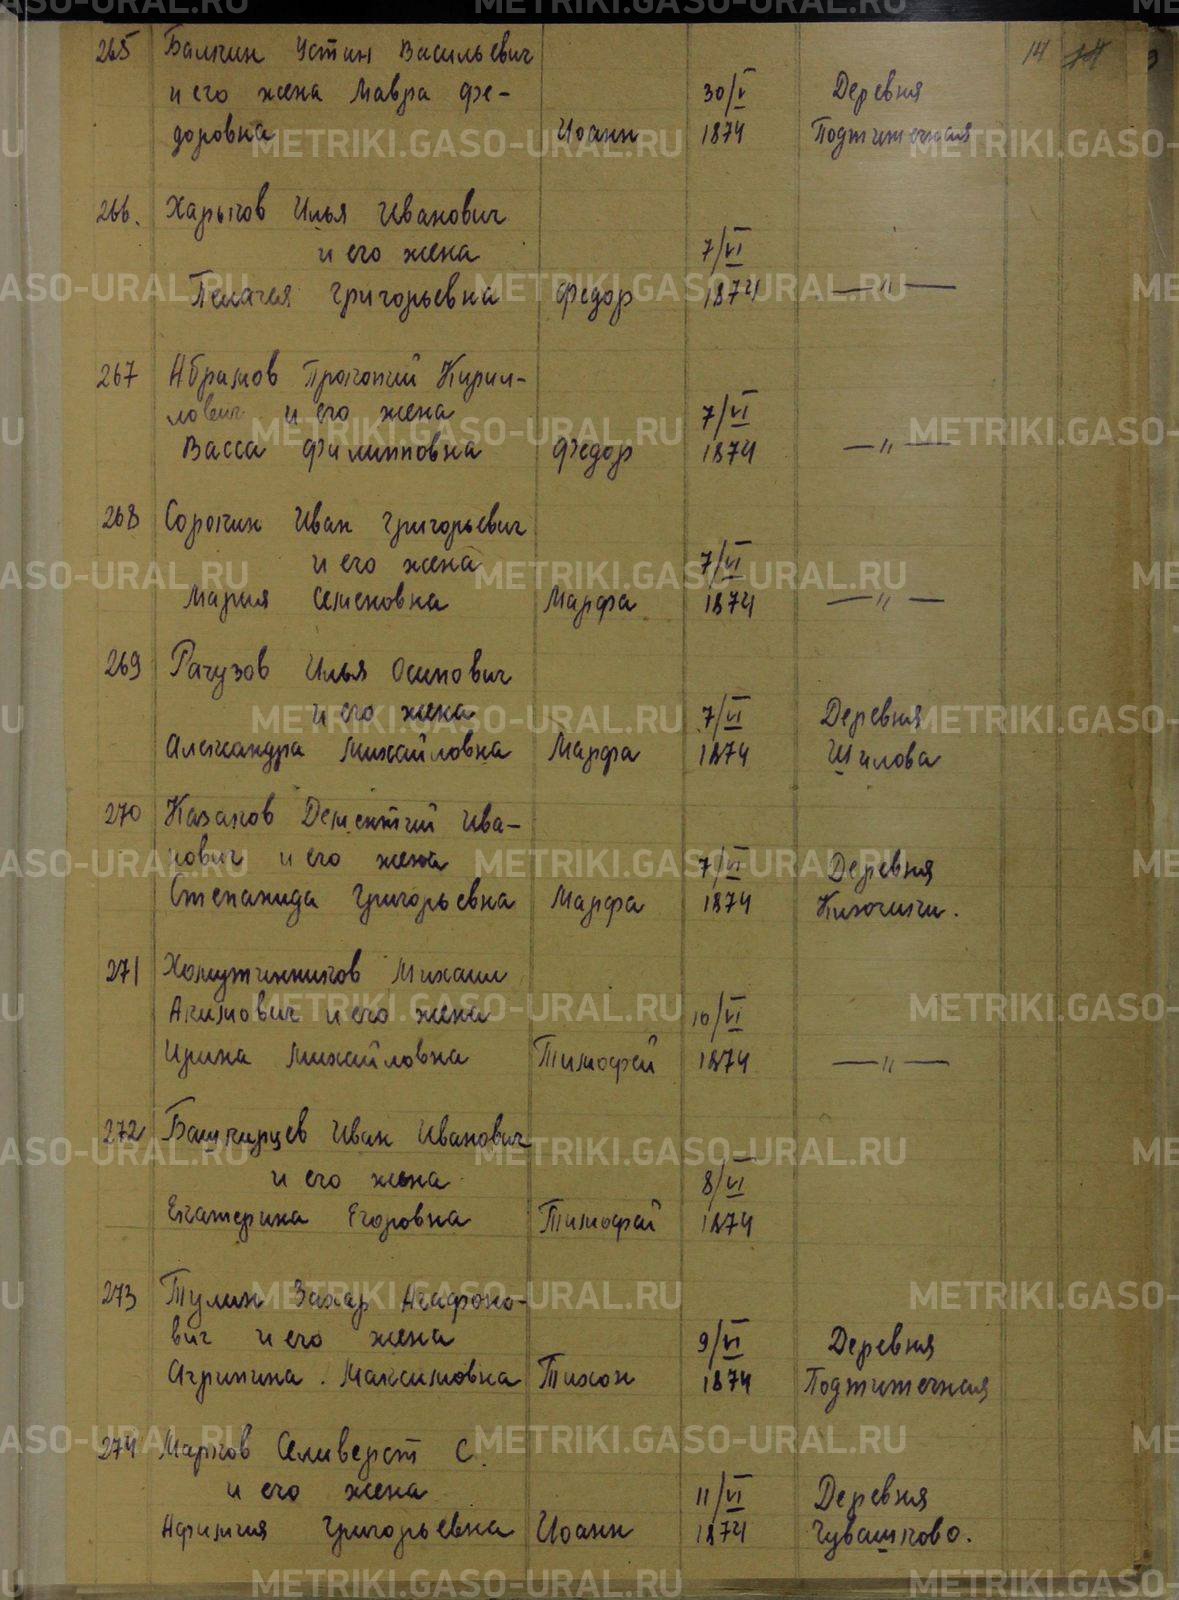 14 14
265 Балкин Устин Васильевич
и его жена Мавра Фе- 30/V Деревня
доровна Иоанн 1874
266. Харьков Илья Иванович
и его жена 7/VI
Пелагея Григорьевна Федор 1874 —"—
267 Абрамов Прокопий Кирил-
лович и его жена 7/VI
Васса Филипповна Федор 1874 —"—
268 Сорокин Иван Григорьевич
и его жена 7/VI
Мария Семеновна Марфа 1874 —"—
269 Рагузов Илья Осипович
и его жена 7/VI Деревня
Александра Михайловна Марфа 1874 Шилова
270 Казаков Дементий Ива-
нович и его жена 7/VI Деревня
Степанида Григорьевна Марфа 1874
271 Хомутинников Михаил
Акимович и его жена 10/VI
Ирина Михайловна Тимофей 1874 —"—
272 Башкирцев Иван Иванович
и его жена 8/VI
Екатерина Егоровна Тимофей 1874
273 Тулин Захар Агафоно-
вич и его жена 9/VI Деревня
Агрипина. Максимовна Тихон 1874
274 Марков Селиверст С.
и его жена 11/VI Деревня
Афимия Григорьевна Иоанн 1874 Чувашково.
METRIKI.GASO-URAL.RU